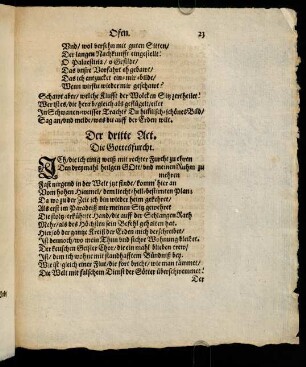 Ofen. 23
Und/ wol versehn mit guten Sitten/
Der langen Nachkunfft eingestellt:
O Palaestina/ o Gefilde/
Das unser Vorfahrt
Das ich entzuckt mir bilde/
Wenn wirstu wieder mir geschawt?
Schawt aber/ welche Klufft der Wolcken Sitz zertheilet!
Wer ist es/ die herab/ gleich als geflügelt/ eilet
In Schwanen-weisser Tracht? Du himlisch-schönes Bild/
Sag an/ und melde/ was du auff der Erden wilt.
Der dritte Act.
Die Gottesfurcht.
ICh/ die ich einig weiß mit rechter Furcht zu ehren
Den dreymahl heilgen GOtt/ und meinen Ruhm zu
mehren
Fast niergend in der Welt jtzt finde/ komm hier an
Vom hohen Himmel/ dem liecht-hell-bestirnten Plan;
Da wo zu der Zeit ich bin wieder heim gekehrt/
Als erst im Paradieß mir meinen Sitz gewehret
Die stoltz-erkühnte Hand/ die auff der Schlangen Rath
Mehr/ als des Höchsten sein Befehl gehalten hat.
Hier/ ob der gantze Kreiß der Erden mich
Ist dennoch/ wo mein Thun und sichre Wohnung bleibet.
Der keuschen Geister Chor/ die einmahl blieben trew/
Ist/ dem ich wohne mit standhafftem Bündniß bey.
Wie ist gleich einer Flut/ die fort bricht/ wie man tämmet/
Die Welt mit falschem Dienst der Götter überschwemmet!
Der